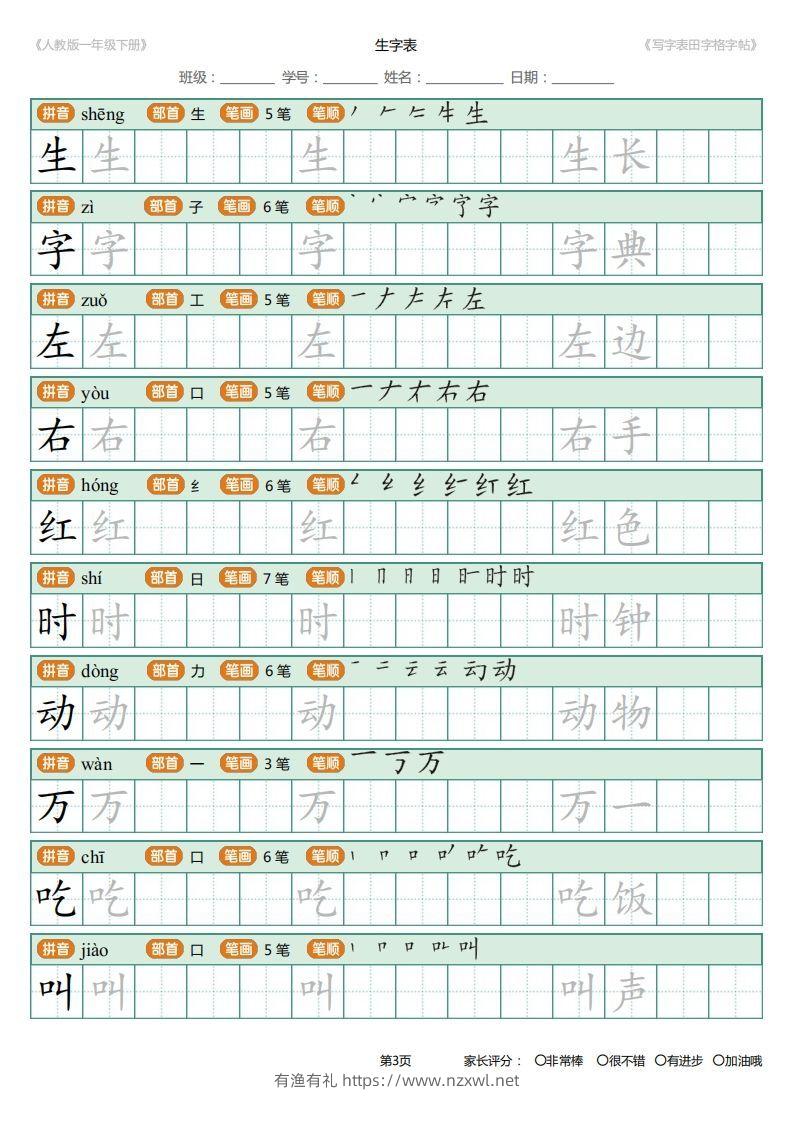 《人教版一年级下册》 生字表 《写字表田字格字帖》
班级：________ 学号：________ 姓名：___________ 日期：_________
拼音 shēng 部首 生 笔画 5 笔 笔顺
生 生 生 生 长
拼音 zì 部首 子 笔画 6 笔 笔顺
字 字 字 字 典
拼音 zuǒ 部首 工 笔画 5 笔 笔顺
左 左 左 左 边
拼音 yòu 部首 口 笔画 5 笔 笔顺
右 右 右 右 手
拼音 hóng 部首 纟 笔画 6 笔 笔顺
红 红 红 红 色
拼音 shí 部首 日 笔画 7 笔 笔顺
时 时 时 时 钟
拼音 dòng 部首 力 笔画 6 笔 笔顺
动 动 动 动 物
拼音 wàn 部首 一 笔画 3 笔 笔顺
万 万 万 万 一
拼音 chī 部首 口 笔画 6 笔 笔顺
吃 吃 吃 吃 饭
拼音 jiào 部首 口 笔画 5 笔 笔顺
叫 叫 叫 叫 声
第3页 家长评分： 〇非常棒 〇很不错 〇有进步 〇加油哦
有渔有礼 https://www.nzxwl.net